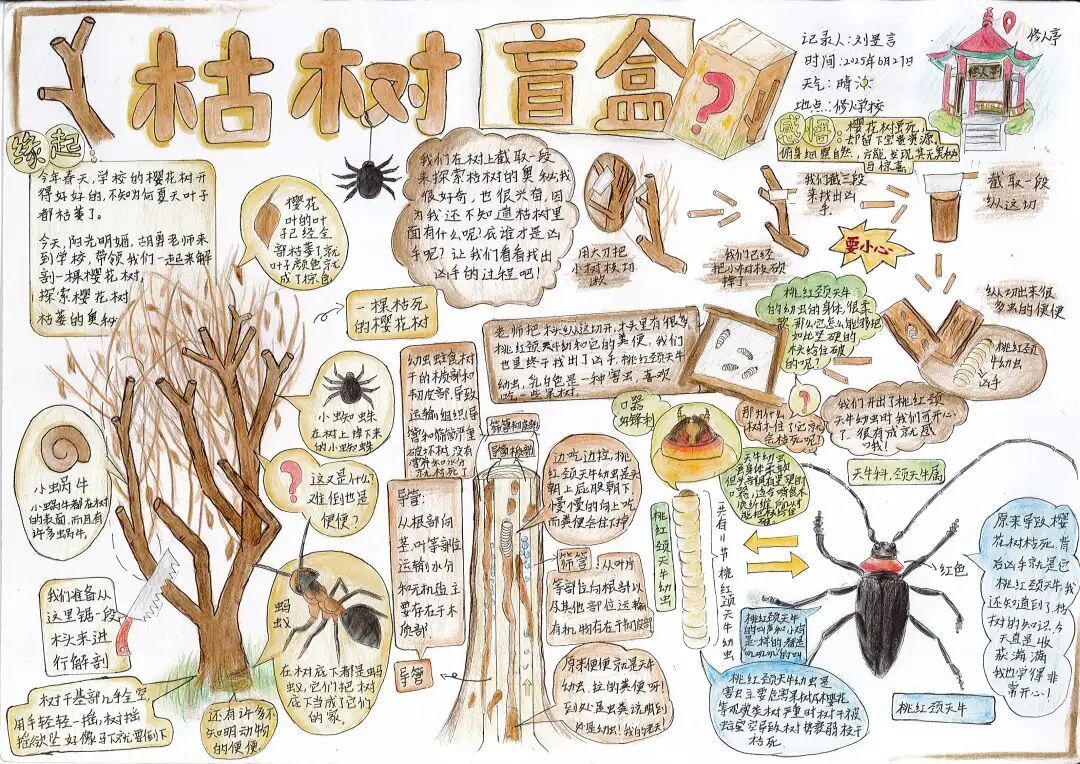 枯树盲盒
记录人:刘昱言
时间:2025年6月27日
天气:晴
地点:修人学校
修人亭
修人亭
缘起:
今年春天,学校的樱花树开
得好好的,不知为何夏天叶子
都枯萎了。
今天,阳光明媚,胡勇老师来
到学校,带领我们一起来解
剖一棵樱花树,
探索樱花树
枯萎的奥秘
感悟:樱花树虽死,
却留下宝贵资源,
俯身细察自然,方能发现其无穷奥秘
与惊喜
樱花
叶的叶
子已经全
部枯萎了就
叶子颜色就
成了棕色
我们在树上截取一段
来探索枯树的奥秘,我
很好奇,也很兴奋,因
为我还不知道枯树里
面有什么呢?底谁才是凶
手呢?让我们看看找出
凶手的过程吧!
用大刀把
小树枝切
断
我们已经
把小树枝砍
掉了
我们截三段
来找出凶
手。
截取一段
纵这切
要小心
纵切出来很
多虫的便便
桃红颈天
牛幼虫
凶手
一棵枯死
的樱花树
老师把木头纵这切开,木头里有很多
桃红颈天牛幼和它的粪便,我们
也是终于找出了凶手,桃红颈天牛
幼虫,乳白色是一种害虫,喜欢
吃一些果树。
桃红颈天牛
的幼虫的身体很柔
软,那么它怎么能够把
如此坚硬的
木头给住破
的呢?
那为什么
树木住了它就
会枯死呢?
我们开出了桃红颈
天牛幼虫时我们可开心
了,很有成就感
口我!
小虫蜘蛛
在树上掉下来
的小虫蜘蛛
幼虫蛀食树
干的木质部和
韧皮部,导致
运输组织导
管和筛管严重
破坏树没有
营养和水分
就枯死了
筛管韧皮部
导管木质部
口器
好锋利
天牛幼虫
满身体柔软
但头部拥有坚硬的
口器,适合啃食木
小虫蜗牛
小虫蜗牛都在树
的表面,而且有
许多虫蜗牛。
这又是什么?
难但也是
便便?
导管:
从根部向
茎,叶等部位
运输水分
和无机盐主
要存在于木
质部
导管
边吃边拉,桃
红颈天牛幼虫是头
朝上屁股朝下
慢慢的向上吃
而粪便会往下掉
筛管:从叶片
等部位向根部以
及其他部位运输
有机物存在于韧皮部
桃红颈天牛幼虫
共有11节桃红颈天牛幼虫
天牛科,颈天牛属
红色
原来导致樱
花树枯死,背
后凶手就是它
桃红颈天牛,我
还知道到了,枯
树的知识,今
天真是收
获满满
我也学得非
常开心!
我们准备从
这里锯一段
木头来进
行解剖
蚂蚁
在树底下都是蚂
蚁,它们把树
底下当成了它们
的家。
树干基部几乎空,
用手轻轻一摇,树摇
摇欲坠,好像马下就要倒下
还有许多不
知明动物
的便便
原来便便就是天牛
幼虫,拉的粪便呀!
到处是虫粪说明到
处是幼虫!我的老天!
桃红颈天牛
的叫声和小鸡
是一样的都是
“叽叽叽”的叫
桃红颈天牛幼虫是
害虫主要危害果树木樱花
等观赏类树严重时树干被
蛀空导致树势衰弱枝干
枯死
桃红颈天牛